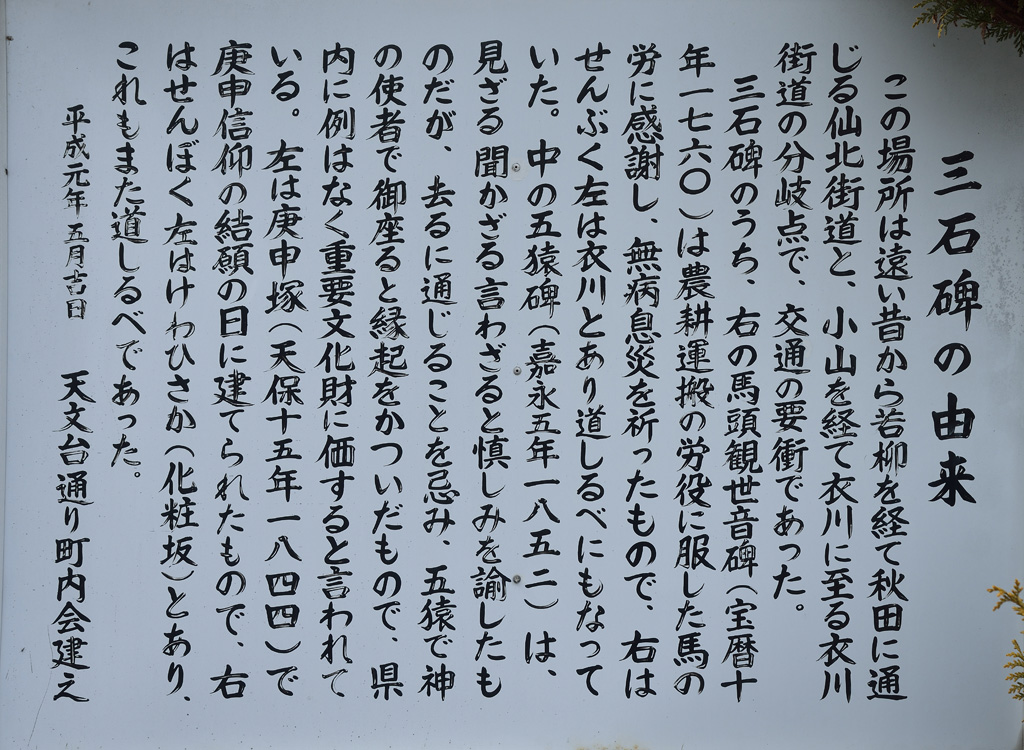 三石碑の由来
この場所は遠い昔から若柳を経て秋田に通
じる仙北街道と、小山を経て衣川に至る衣川
街道の分岐点で、交通の要衝であった。
三石碑のうち、右の馬頭観世音碑(宝暦十
年一七六〇)は農耕運搬の労役に服した馬の
労に感謝し、無病息災を祈ったもので、右は
せんぶく左は衣川とあり道しるべにもなって
いた。中の五猿碑(嘉永五年一八五二)は、
見ざる聞かざる言わざると慎しみを諭したも
のだが、去るに通じることを忌み、五猿で神
の使者で御座ると縁起をかついだもので、県
内に例はなく重要文化財に価すると言われて
いる。左は庚申塚(天保十五年一八四四)で
庚申信仰の結願の日に建てられたもので、右
はせんぼく左はけわひさか(化粧坂)とあり、
これもまた道しるべであった。
平成元年五月吉日 天文台通り町内会建之